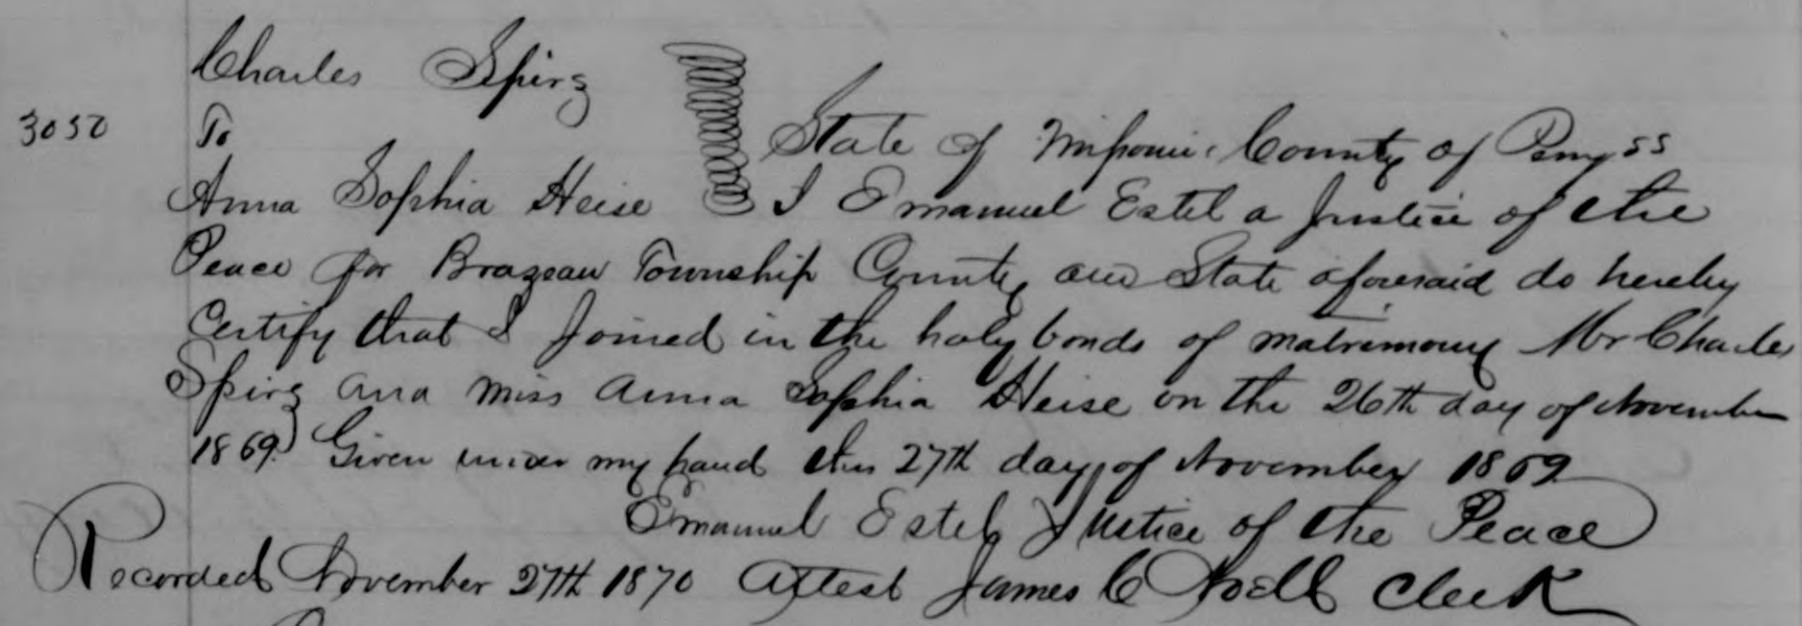 Charles Spirz
3050 To State of Missouri County of Perry SS
Anna Sophia Heise I Emanuel Estel a Justice of the
Peace for Brazeau Township County and State aforesaid do hereby
Certify that I Joined in the holy bonds of matrimony Mr Charles
Spirz and Miss Anna Sophia Heise on the 26th day of November
1869. Given under my hand this 27th day of November 1869
Emanuel Estel Justice of the Peace
Recorded November 27th 1870 Attest James C Noell Clerk